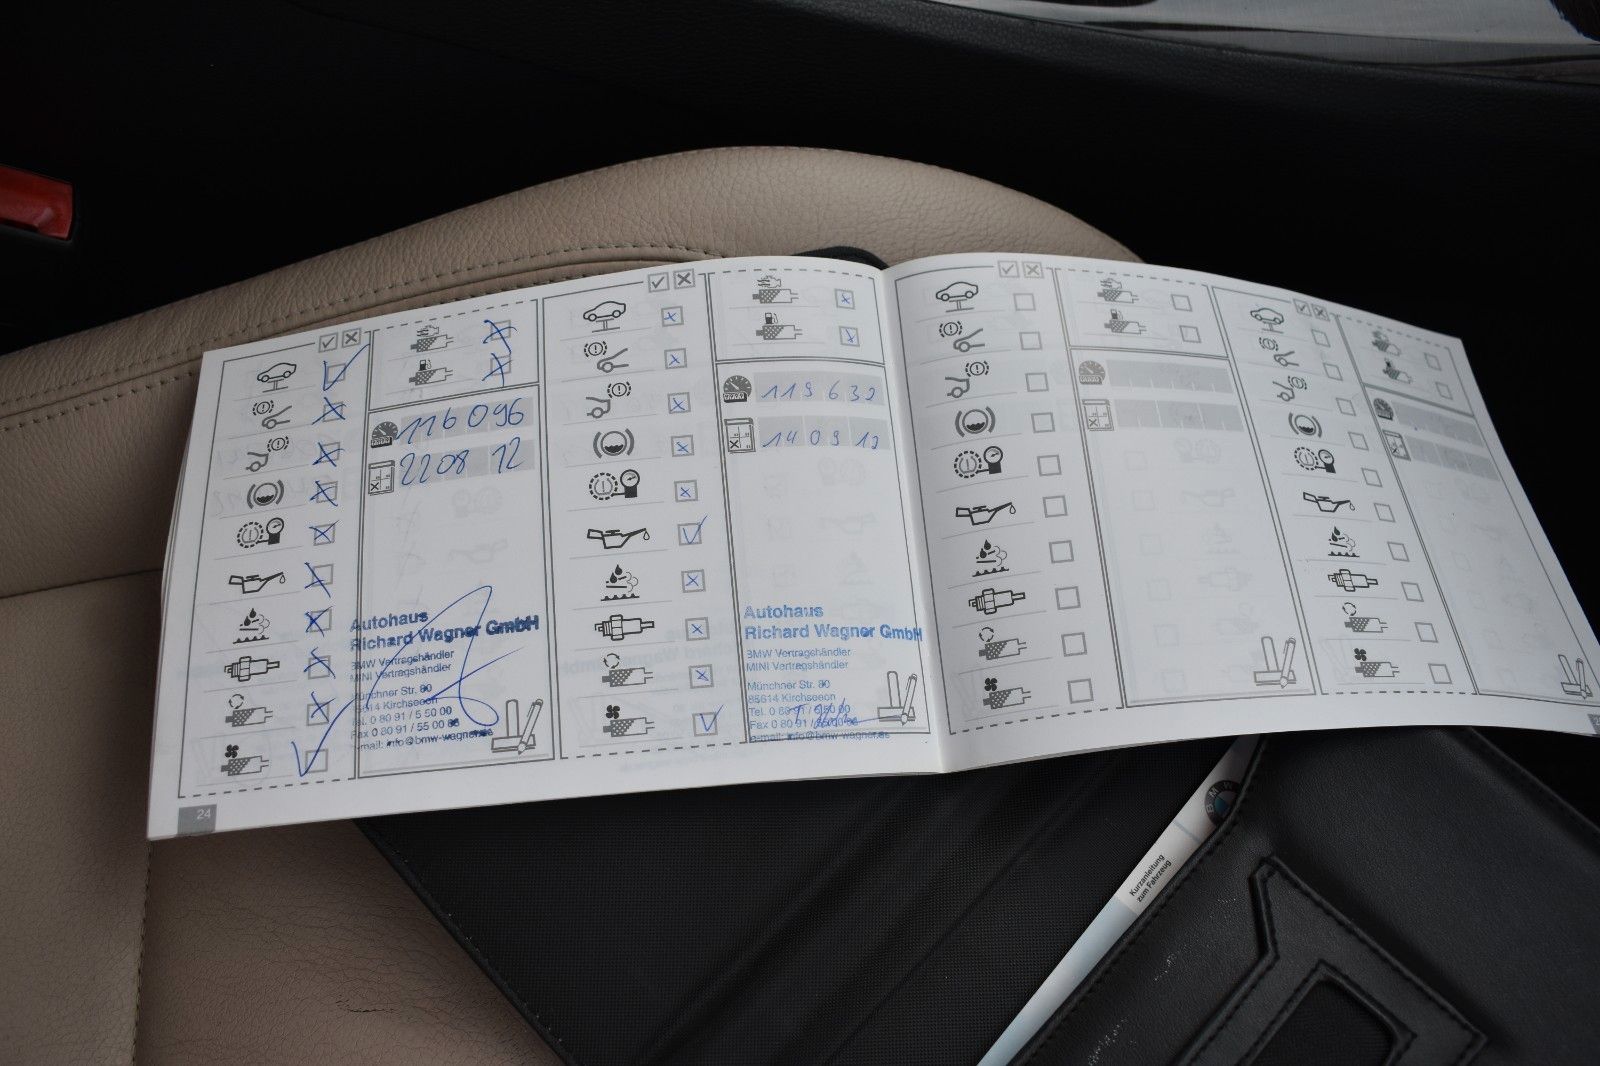 116096
220812
Autohaus
Richard Wagner GmbH
BMW Vertragshändler
MINI Vertragshändler
Münchner Str. 80
85614 Kirchseeon
Tel. 0 80 91 / 5 50 00
Fax 0 80 91 / 55 00 88
e-mail: info@bmw-wagner.de
24
119632
140912
Autohaus
Richard Wagner GmbH
BMW Vertragshändler
MINI Vertragshändler
Münchner Str. 80
85614 Kirchseeon
Tel. 0 80 91 / 5 50 00
Fax 0 80 91 /
e-mail: info@bmw-wagner.de
BMW
Kurzanleitung
zum Fahrzeug